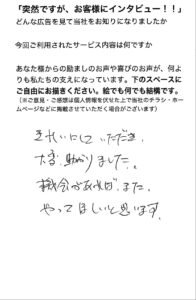 「突然ですが、お客様にインタビュー！！」
どんな広告を見て当社をお知りになりましたか
今回ご利用されたサービス内容は何ですか
あなた様からの励ましのお声や喜びのお声が、何よ
りも私たちの支えになっています。下のスペースに
ご自由にお描きください。絵でも何でも結構です。
(※ご意見・ご感想は個人情報を伏せた上で当社のチラシ・ホーム
ページなどに掲載させていただく場合がございます)
きれいにしていただき、
大変助かりました。
機会があれば、また、
やってほしいと思います。